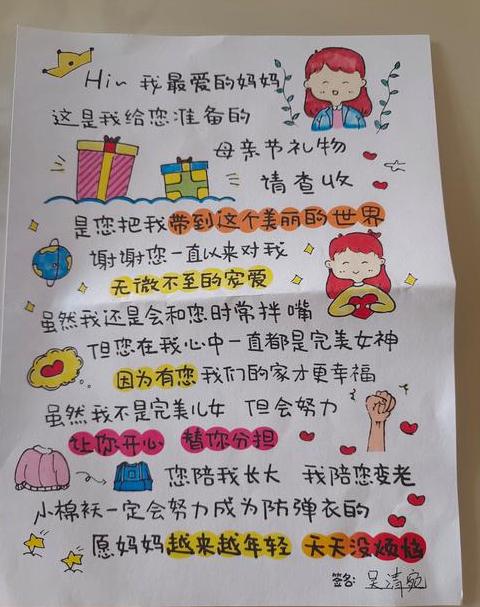 Hi~ 我最爱的妈妈
这是我给您准备的
母亲节礼物
请查收
是您把我带到这个美丽的世界
谢谢您一直以来对我
无微不至的宠爱
虽然我还是会和您时常拌嘴
但您在我心中一直都是完美女神
因为有您我们的家才更幸福
虽然我不是完美儿女 但会努力
让你开心 替你分担
您陪我长大 我陪您变老
小棉袄一定会努力成为防弹衣的
愿妈妈越来越年轻 天天没烦恼
签名: 吴清宛